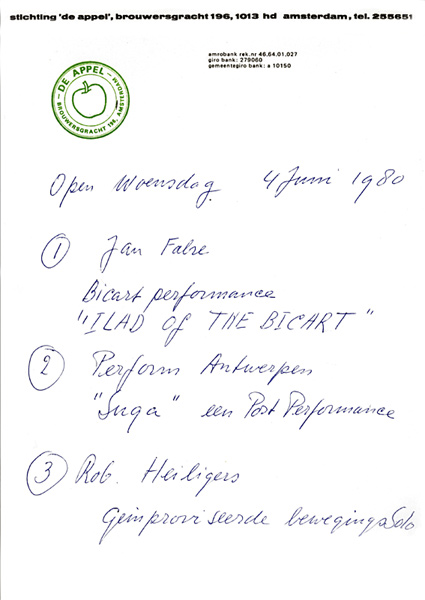 stichting 'de appel', brouwersgracht 196, 1013 hd amsterdam, tel. 255651
amrobank rek.nr 46.64.01.027
giro bank: 279060
gemeentegiro bank: a 10150
DE APPEL
BROUWERSGRACHT 196, AMSTERDAM
Open Woensdag 4 Juni 1980
1 Jan Fabre
Bicart performance
"ILAD of THE BICART"
2 Perform Antwerpen
"Suga" een Post Performance
3 Rob. Heiligers
Geimproviseerde bewegingsSolo